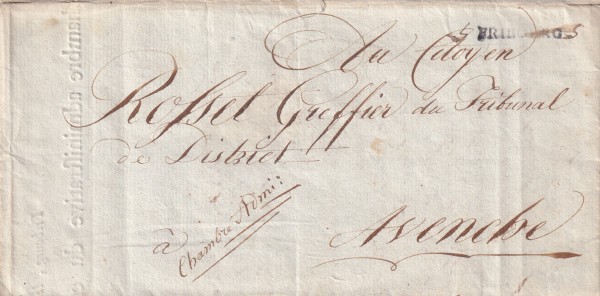 FRIBOURG
Au Citoyen
Rosset Greffier du Tribunal
de District
à
Chambre Admi:
Avenche